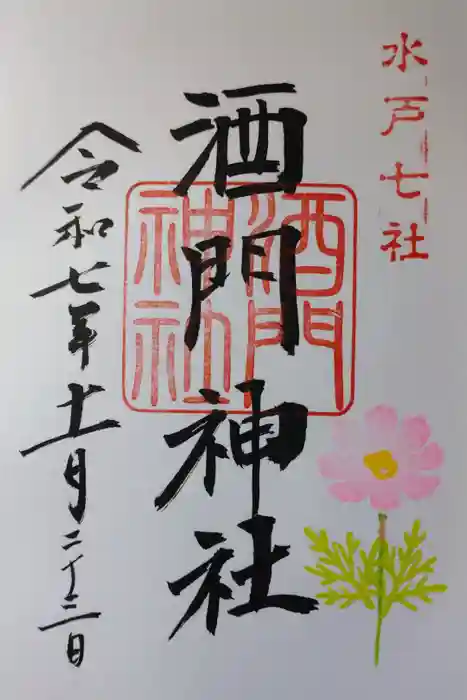 水戸七社
酒門神社
酒門
神社
令和七年十一月二十三日